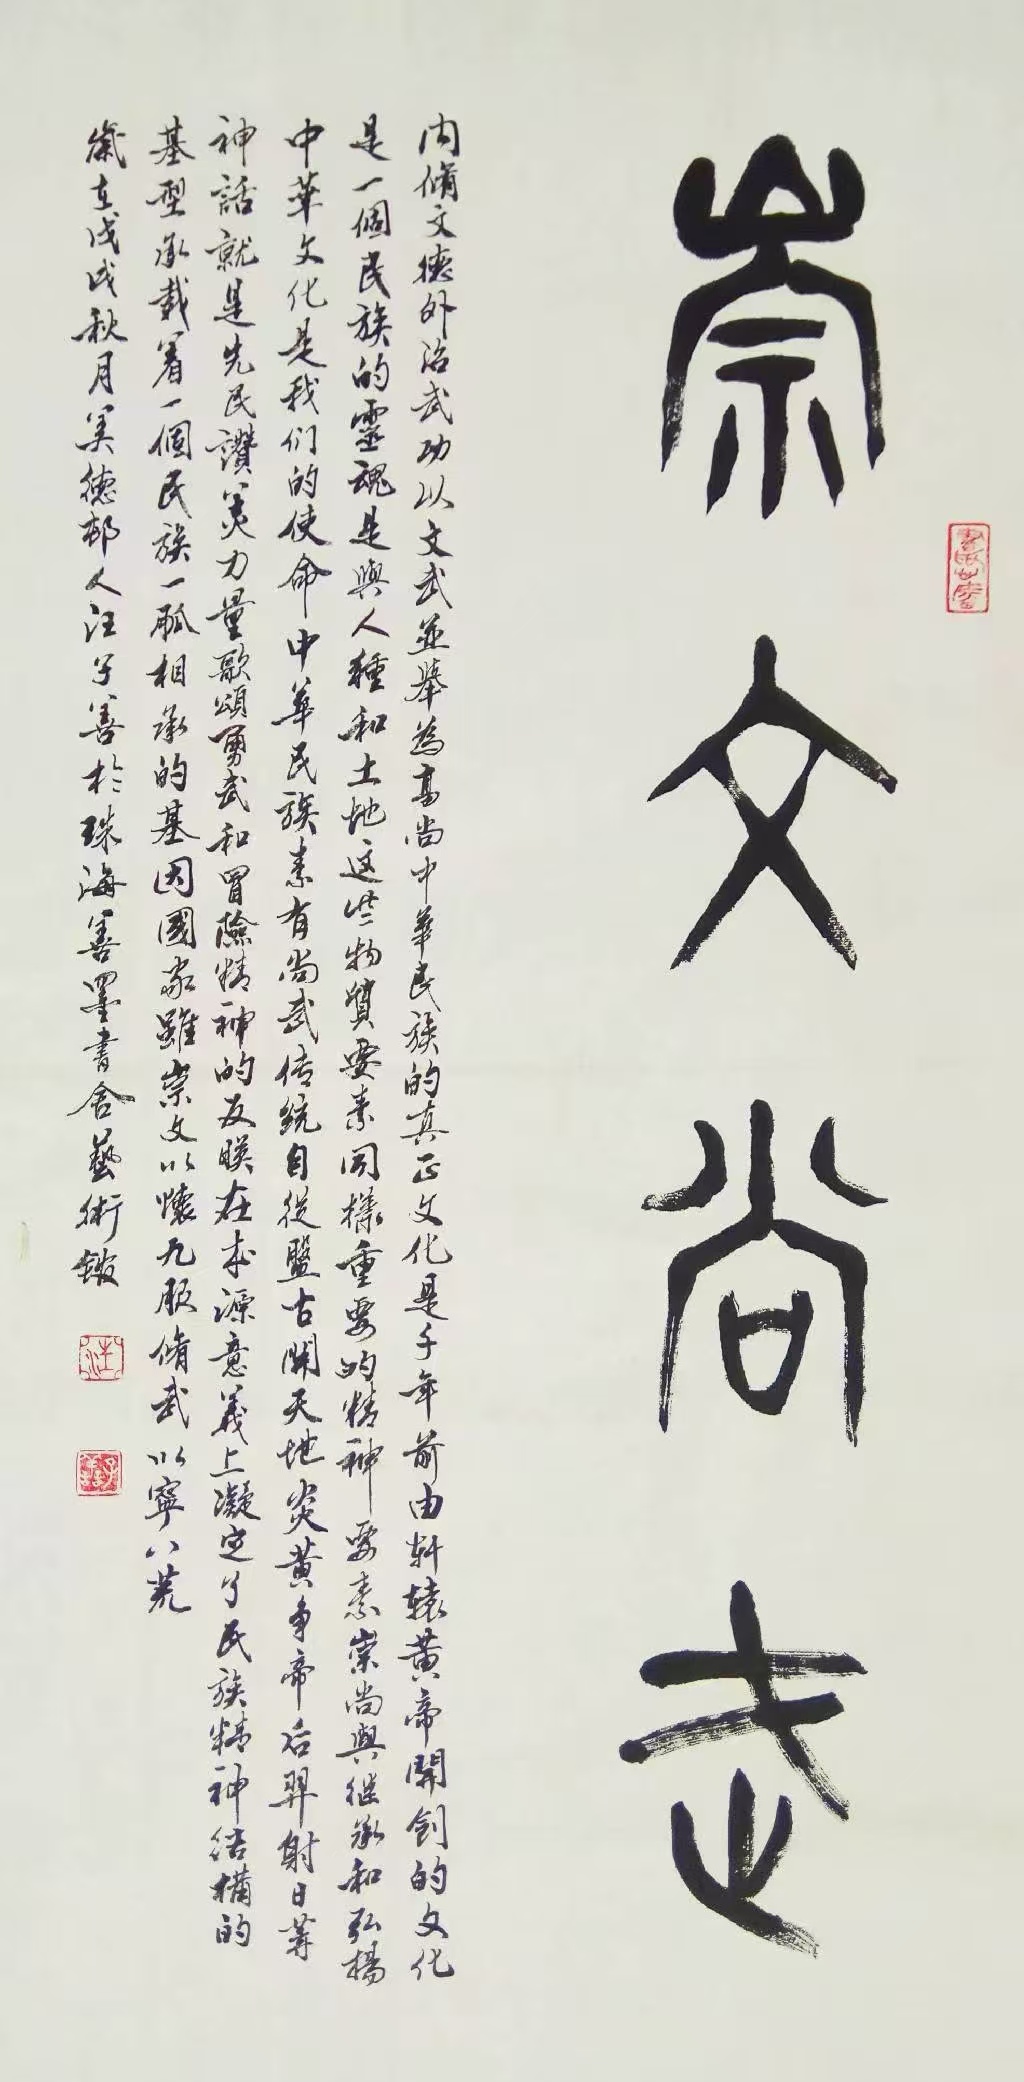 崇文尚武
内脩文德外治武功以文武並舉為高尚中華民族的真正文化是千年前由軒辕黄帝開創的文化
是一個民族的靈魂是與人種和土地这些物質要素同樣重要的精神要素崇尚與继承和弘楊
中華文化是我们的使命中華民族素有尚武传統自從盤古開天地炎黄争帝后羿射日等
神話就是先民讚美力量歌頌勇武和冒險精神的反映在本源意義上凝定了民族精神结構的
基型承載着一個民族一脈相承的基因國家雖崇文以懷九服脩武以寧八荒
歲在戊戌秋月美德邨人汪子善於珠海善墨書舍藝術館
汪